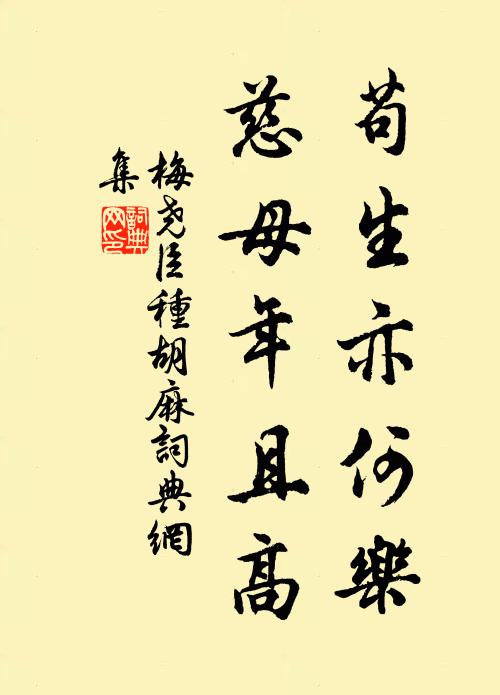 苟生亦何樂
慈母年且高
梅尧臣種胡麻詞典網
集
詞典網印